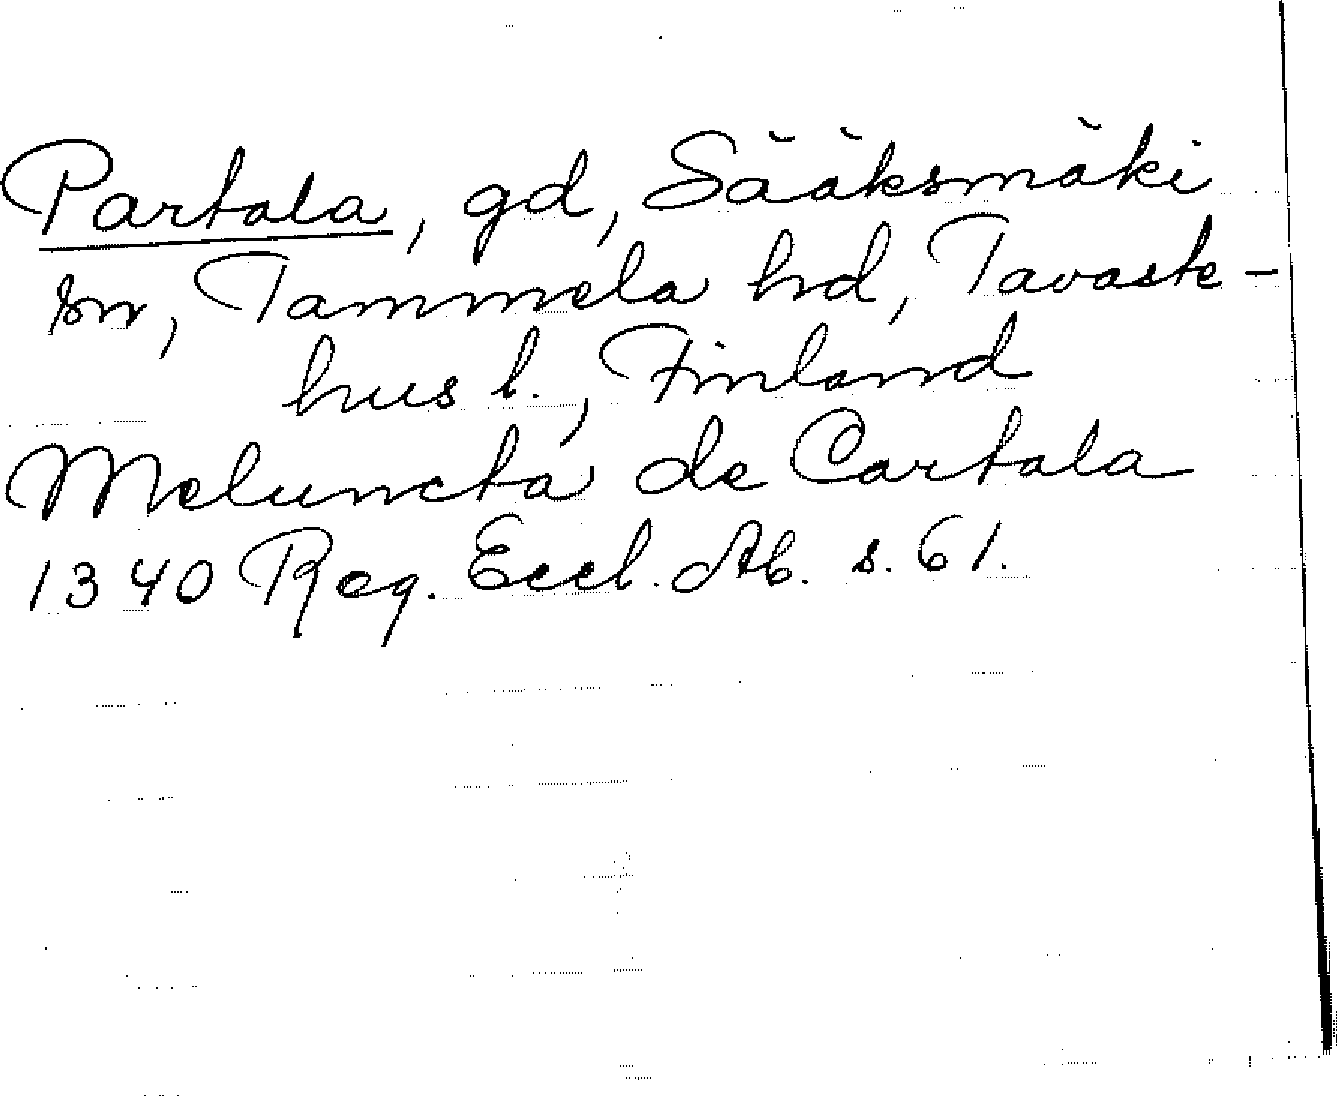 Partala, gd, Sääksmäki
sn, Tammela hd, Tavaste-
hus l., Finland
Meluncta de Cartala
1340 Reg. Eccl. Ab. s. 61.